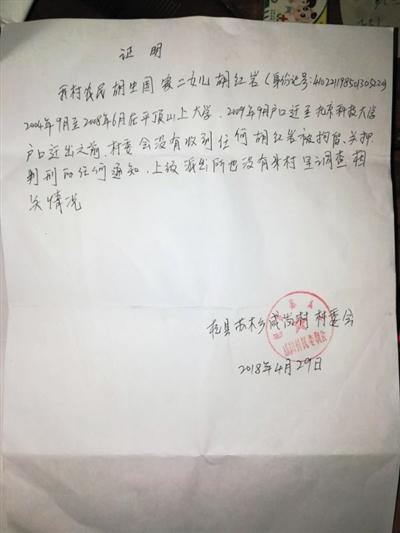 证 明
我村农民胡生国家二女儿胡红岩(身份证号:
2004年9月至2008年6月在平顶山上大学,2009年9月户口迁至北京科技大学
户口迁出之前,村委会没有收到任何胡红岩被拘留、关押、
判刑的任何通知,上级派出所也没有来村里调查相
关情况
杞县苏木乡成尚村 村委会
2018年4月29日